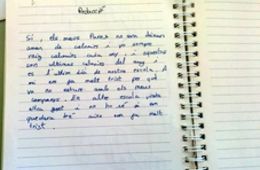 Redacció
Si, els meus Pares no son dolents
anam de calonies i jo sempre
vaig calonies cada any i aquestes
son ultimes calonies del any i
es l'ultim dia de nostra escola. A
mi em fa molt trist per què
va no estare amb els meus
companys. En altre escola
i no se si em
quedara bé aixo em fa molt
trist.